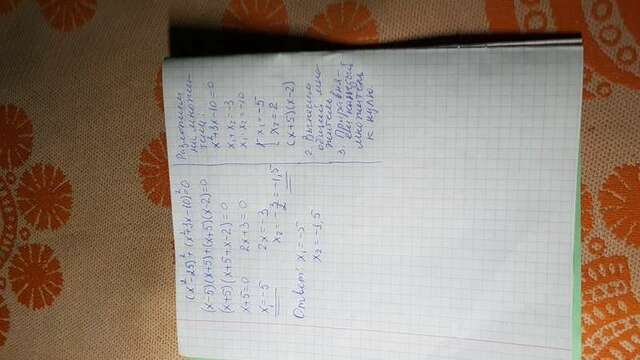 (x²-25)²+(x²+3x-10)²=0
(x-5)(x+5)+(x+5)(x-2)=0
(x+5)(x+5+x-2)=0
x+5=0 2x+3=0
x₁=-5 2x=-3
x₂=-3/2=-1,5
Ответ: x₁=-5
x₂=-1,5
Разложим
на множи-
тели:
x²+3x-10=0
x₁+x₂=-3
x₁·x₂=-10
x₁=-5
x₂=2
(x+5)(x-2)
2. Выносим
общий мно-
житель
3. Приравня-
ем каждый
множитель
к нулю.